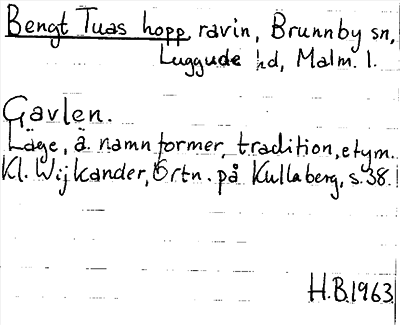 Bengt Tuas hopp, ravin, Brunnby sn,
Luggude hd, Malm. l.
Gavlen.
Läge, ä. namnformer, tradition, etym.
Kl. Wijkander, Ortn. på Kullaberg, s. 38.
H.B.1963